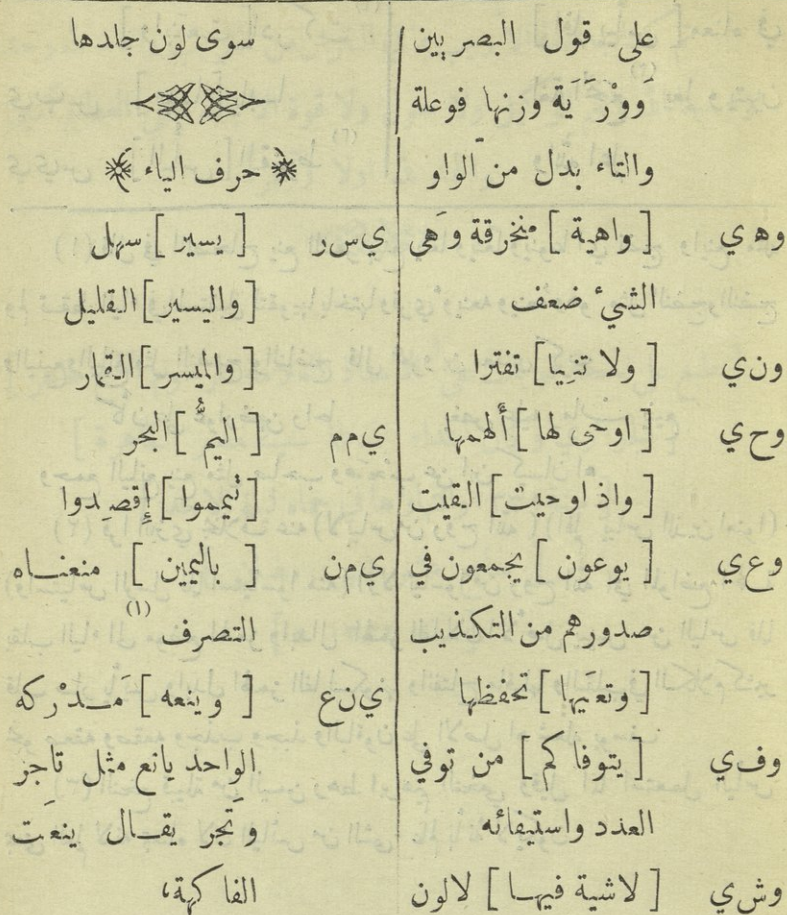 على قول البصريين
وَوْرَيَة وزنها فوعلة
والتاء بدل من الواو
وهي [ واهية ] منخرقة وَهى
الشيءُ ضعف
وني [ ولا تنِيا ] تفترا
وحي [ اوحى لها ] أَلهمها
[ واذ اوحيت ] القيت
وعي [ يوعون ] يجمعون في
صدورهم من التكذيب
[ وتعيَها ] تحفظها
وفي [ يتوفاكم ] من توفي
العدد واستيفائه
وشي [ لاشية فيهـا ] لالون
سوى لون جلدها
﴿ حرف الياء ﴾
يسر [ يسير ] سهل
[ واليسير ] القليل
[ والميسر ] القمار
يمم [ اليمُّ ] البحر
[ تيمموا ] إِقصِدوا
يمن [ باليمين ] منعنـاه
التصرف (١)
ينع [ وينعه ] مَـدْركه
الواحد يانع مثل تاجر
وتَجر يقـال ينعت
الفاكهة،